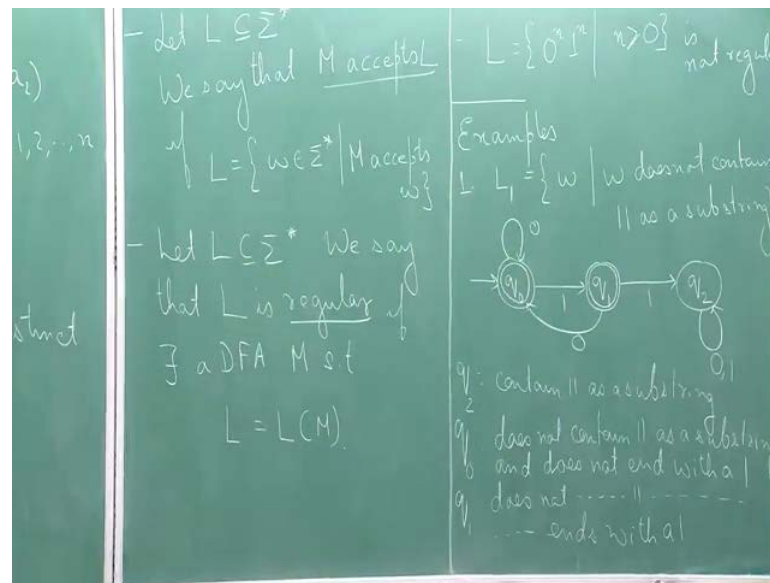 a₂)
1, 2, ..., n
struct
- Let L ⊆ Σ*
We say that M accepts L
if L = { w ∈ Σ* | M accepts
w}
- Let L ⊆ Σ* We say
that L is regular if
∃ a DFA M s.t
L = L(M).
- L = { 0ⁿ 1ⁿ | n ≥ 0} is
not regul
Examples
1. L₁ = { w | w does not contain
11 as a substring}
0
q₀ 1 q₁ 1 q₂
0
0,1
q₂: contain 11 as a substring
q₀ does not contain 11 as a substring
and does not end with a 1
q₁ does not ..... 11 .........
.... ends with a 1